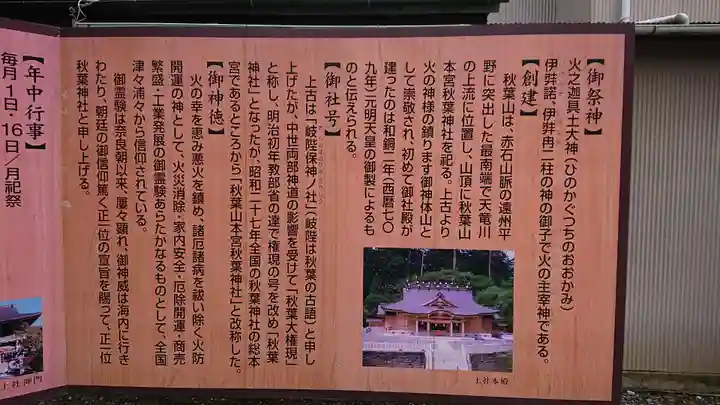 【御祭神】
火之迦具土大神(ひのかぐつちのおおかみ)
伊弉諾、伊弉冉二柱の神の御子で火の主宰神である。
【創建】
秋葉山は、赤石山脈の遠州平
野に突出した最南端で天竜川
の上流に位置し、山頂に秋葉山
本宮秋葉神社を祀る。上古より
火の神様の鎮ります御神体山と
して崇敬され、初めて御社殿が
建ったのは和銅二年(西暦七〇
九年)元明天皇の御製によるも
のと伝えられる。
【御社号】
上古は「岐陛保神ノ社」(岐陛は秋葉の古語)と申し
上げたが、中世両部神道の影響を受けて「秋葉大権現」
と称し、明治初年教部省の達で権現の号を改め「秋葉
神社」となったが、昭和二十七年全国の秋葉神社の総本
宮であるところから「秋葉山本宮秋葉神社」と改称した。
【御神徳】
火の幸を恵み悪火を鎮め、諸厄諸病を祓い除く火防
開運の神として、火災消除・家内安全・厄除開運・商売
繁盛・工業発展の御霊験あらたかなるものとして、全国
津々浦々から信仰されている。
御霊験は奈良朝以来、屡々顕れ、御神威は海内に行き
わたり、朝廷の御信仰篤く正一位の宣旨を賜って、正一位
秋葉神社と申し上げる。
上社本殿
【年中行事】
毎月1日・16日/月祀祭
上社神門